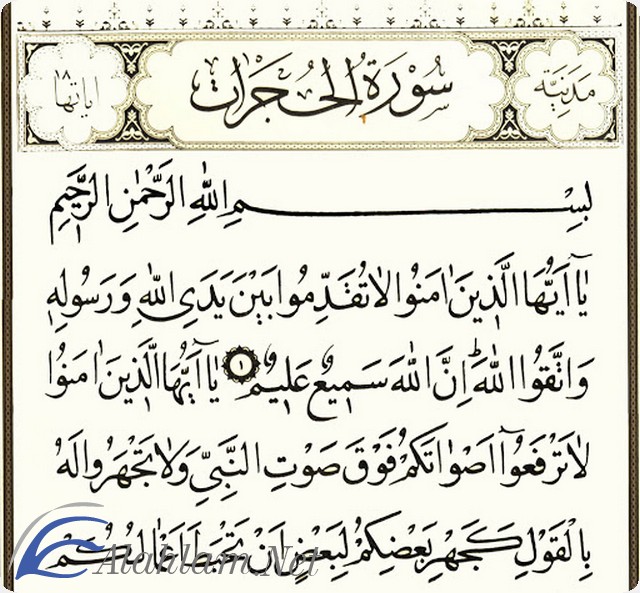 مَدَنِيَّة سُورَةُ الْحُجُرَاتِ اٰيَاتُهَا ١٨
بِسْمِ اللّٰهِ الرَّحْمٰنِ الرَّح۪يمِ
يَٓا اَيُّهَا الَّذ۪ينَ اٰمَنُوا لَا تُقَدِّمُوا بَيْنَ يَدَيِ اللّٰهِ وَرَسُولِه۪
وَاتَّقُوا اللّٰهَۜ اِنَّ اللّٰهَ سَم۪يعٌ عَل۪يمٌ ١ يَٓا اَيُّهَا الَّذ۪ينَ اٰمَنُوا
لَا تَرْفَعُٓوا اَصْوَاتَكُمْ فَوْقَ صَوْتِ النَّبِيِّ وَلَا تَجْهَرُوا لَهُ
بِالْقَوْلِ كَجَهْرِ بَعْضِكُمْ لِبَعْضٍ اَنْ تَحْبَطَ اَعْمَالُكُمْ
Alahlam.Net